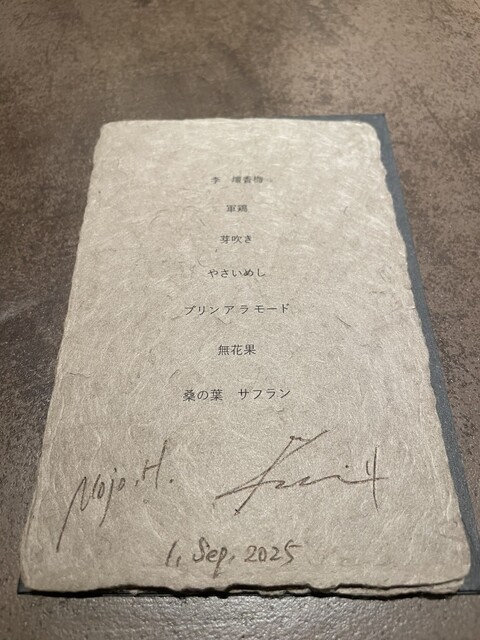 李　壇香梅
軍鶏
芽吹き
やさいめし
プリン ア ラ モード
無花果
桑の葉　サフラン
1, Sep, 2025